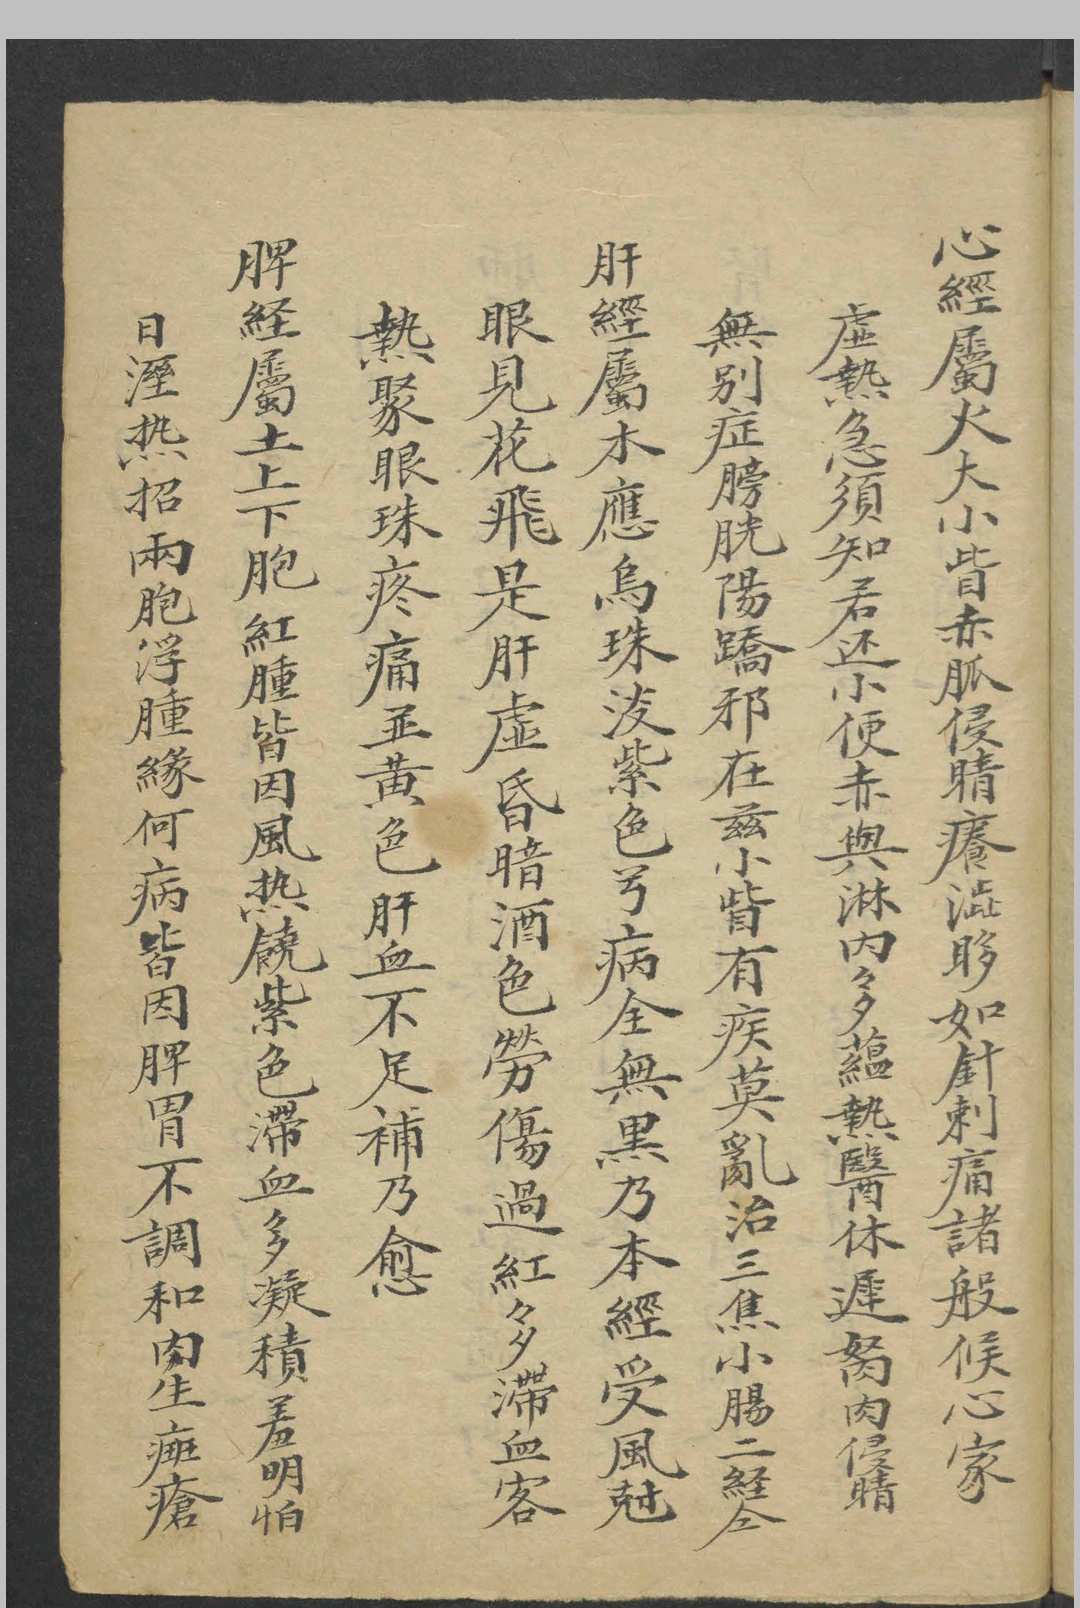 心經屬火大小眥赤脈侵睛癢澁眵如針刺痛諸般候心家
虛熱急須知若还小便赤與淋内多蘊熱醫休遲胬肉侵睛
無別症膀胱陽蹻邪在兹小眥有疾莫亂治三焦小腸二経仝
肝經屬木應烏珠淡紫色兮病全無黑乃本經受風尅
眼見花飛是肝虛昏暗酒色勞傷過紅多滯血客
熱聚眼珠疼痛並黄色肝血不足補乃愈
脾経屬土上下胞紅腫皆因風热饒紫色滯血多凝積羞明怕
日溼热招兩胞浮腫緣何病皆因脾胃不調和肉生瘡